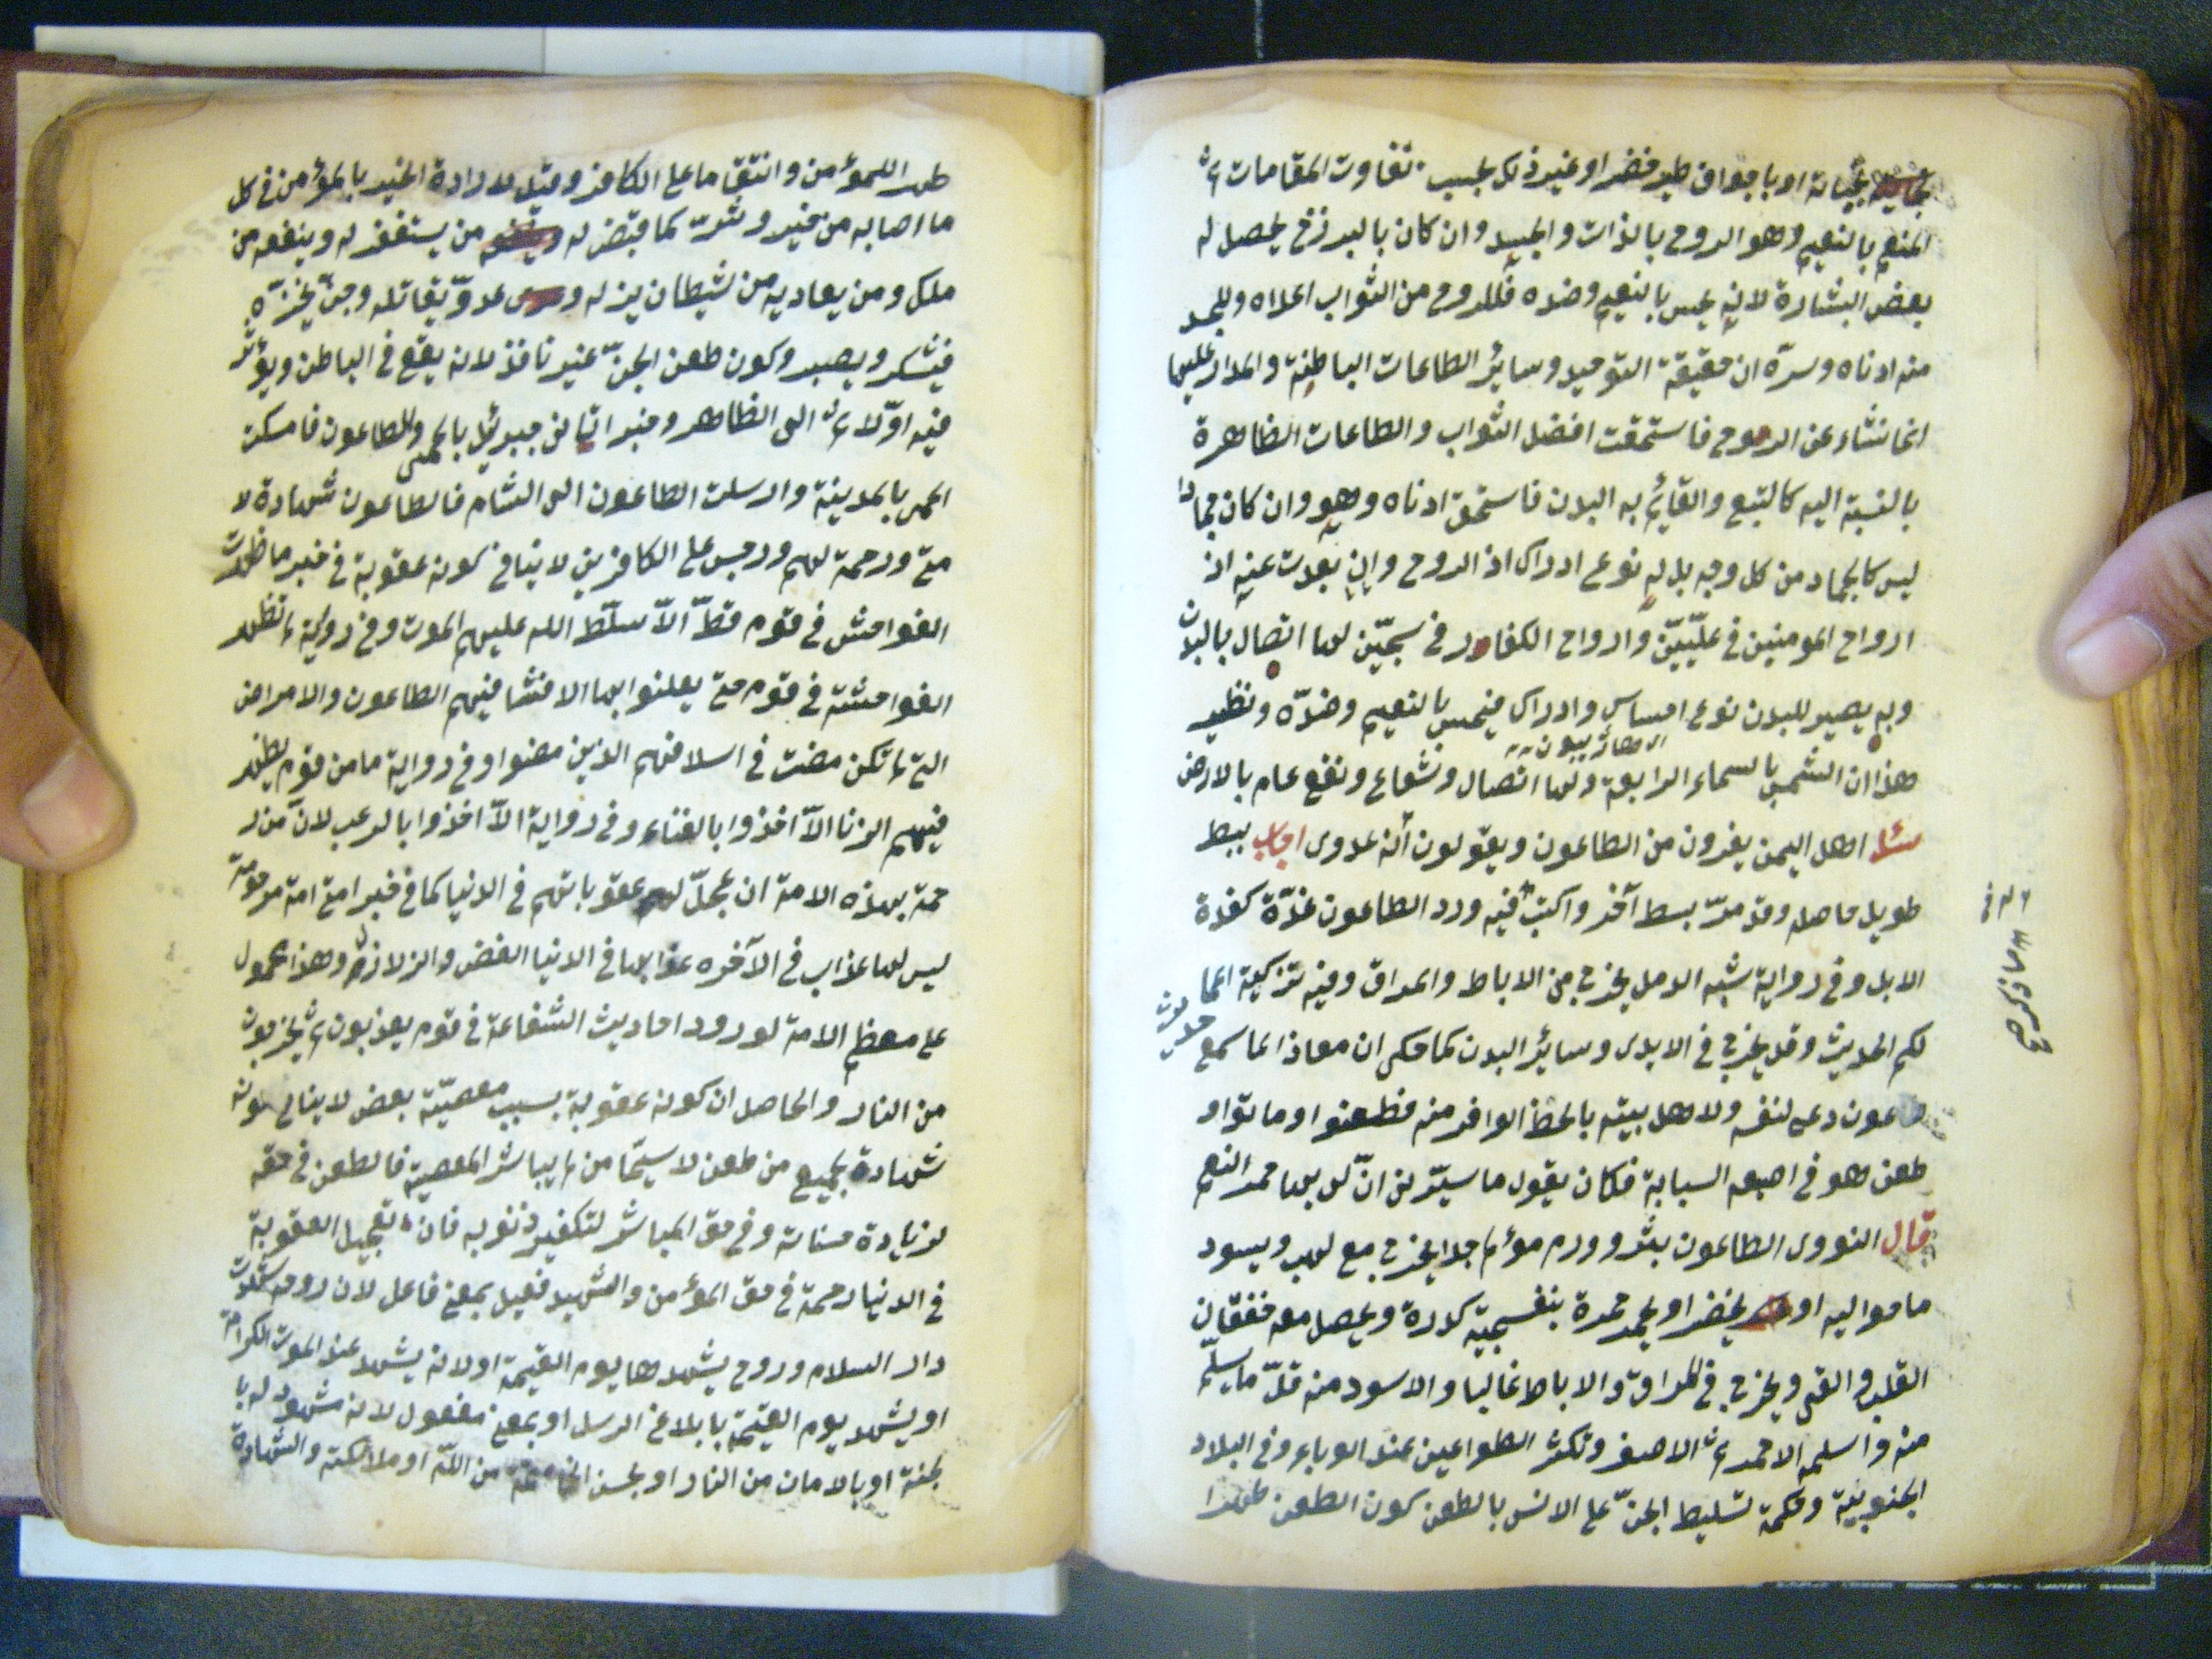 بجثمانه او باجواف طير خضر او غير ذلك بحسب تفاوت المقامات ثم
المنعم بالنعيم وهو الروح بالذات والجسد وان كان بالبرزخ يحصل له
بعض البشارة لانه يحس بالنعيم وضده فللروح من الثواب اعلاه وللجسد
منه ادناه وسرّه ان حقيقة التوحيد وسائر الطاعات الباطنة والمدار عليها
انما نشاء عن الروح فاستحقت افضل الثواب والطاعات الظاهرة
بالنسبة اليه كالتبع والقائم به البدن فاستحق ادناه وهو وان كان جمادا
ليس كالجماد من كل وجه بل له نوع ادراك اذ الروح وان بعدت عنه اذ
ارواح المومنين في علّيّين وارواح الكفار في سجّين لها اتصال بالبدن
وبه يصير للبدن نوع احساس وادراك فيحس بالنعيم وضدّه ونظير
هذا ان الشمس بالسماء الرابعة ولها اتصال وشعاع ونفع عام بالارض
سئل اهل اليمن يفرون من الطاعون ويقولون انه عدوى اجاب ببسط
طويل حاصله وقد مرّ بسط آخر واكتب فيه ورد الطاعون غدّة كغدة
الابل وفي رواية شبه الدمل يخرج من الاباط والمراق وفيه تزكية اعما
لكم الحديث وقد يخرج في الايدى وسائر البدن كما حكى ان معاذا لما سمع حديث
الطاعون دعى لنفسه ولاهل بيته بالحظ الوافر منه فطعنوا وماتوا و
طعن هو في اصبعه السبابة فكان يقول ما سيّرنى انّ لى بها حمر النعم
قال النووى الطاعون بثر وورم مؤلم جدا يخرج مع لهب ويسود
ما حواليه او يخضر او يحمر حمرة بنفسجية كدرة ويحصل معه خفقان
القلب والقى ويخرج في المراق والاباط غالبا والاسود منه قلّ ما يسلم
منه واسلمه الاحمر ثم الاصفر وتكثر الطواعين عند الوباء وفي البلاد
الجنوبية وحكمة تسليط الجنّ على الانس بالطعن كون الطعن طهرا
طهرا للمؤمن وانتقاما على الكافر وقيل لارادة الخير بالمؤمن في كل
ما اصابه من خير وشرّ كما قيض له من يستغفر له وينفعه من
ملك ومن يعاديه من شيطان يزله و عدوّ يقاتله وجنّ يخزّه
فيشكر ويصبر وكون طعن الجنّ غير نافذ لانه يقع في الباطن ويؤثر
فيه اوّلا ثم الى الظاهر وخبر اتانى جبريئل بالحمى والطاعون فامسكت
الحمى بالمدينة وارسلت الطاعون الى الشام فالطاعون شهادة لا
متى ورحمة لهم ورجس على الكافرين لا ينافي كونه عقوبة في خبر ما ظهرت
الفواحش في قوم قطّ الاّ سلّط الله عليهم الموت وفي رواية لم تظهر
الفواحشة في قوم حتى يعلنوا بها الا فشا فيهم الطاعون والامراض
التى لم تكن مضت في اسلافهم الذين مضوا وفي رواية ما من قوم يظهر
فيهم الزنا الاّ اخذوا بالفناء وفي رواية الاّ اخذوا بالرعب لانّ من ر
حمة بهذه الامة ان عجلّ لهم عقوباتهم في الدنيا كما في خبر امتى امة مرحومة
ليس لها عذاب في الآخره عذابها في الدنيا الفتن والزلازل وهذا محمول
على معظم الامة لورود احاديث الشفاعة في قوم يعذبون ثم يخرجون
من النار والحاصل ان كونه عقوبة بسبب معصيّة بعض لا ينافى كونه
شهادة لجميع من طعن لا سيّما من لم يباشر المعصية فالطعن في حقه
لزيادة حسناته وفي حق المباشر لتكفير ذنوبه فانه تعجيل العقوبة
في الدنيا رحمة في حق المؤمن والشهيد فعيل بمعنى فاعل لان روحه شهدت
دار السلام وروح يشهدها يوم القيمة او لانه يشهد عند الموت الكرامة
او يشهد يوم القيمة بابلاغ الرسل او بمعنى مفعول لانه مشهود له با
لجنة او بالامان من النار او بحسن الخاتمة من اللّه او ملائكته والشهادة